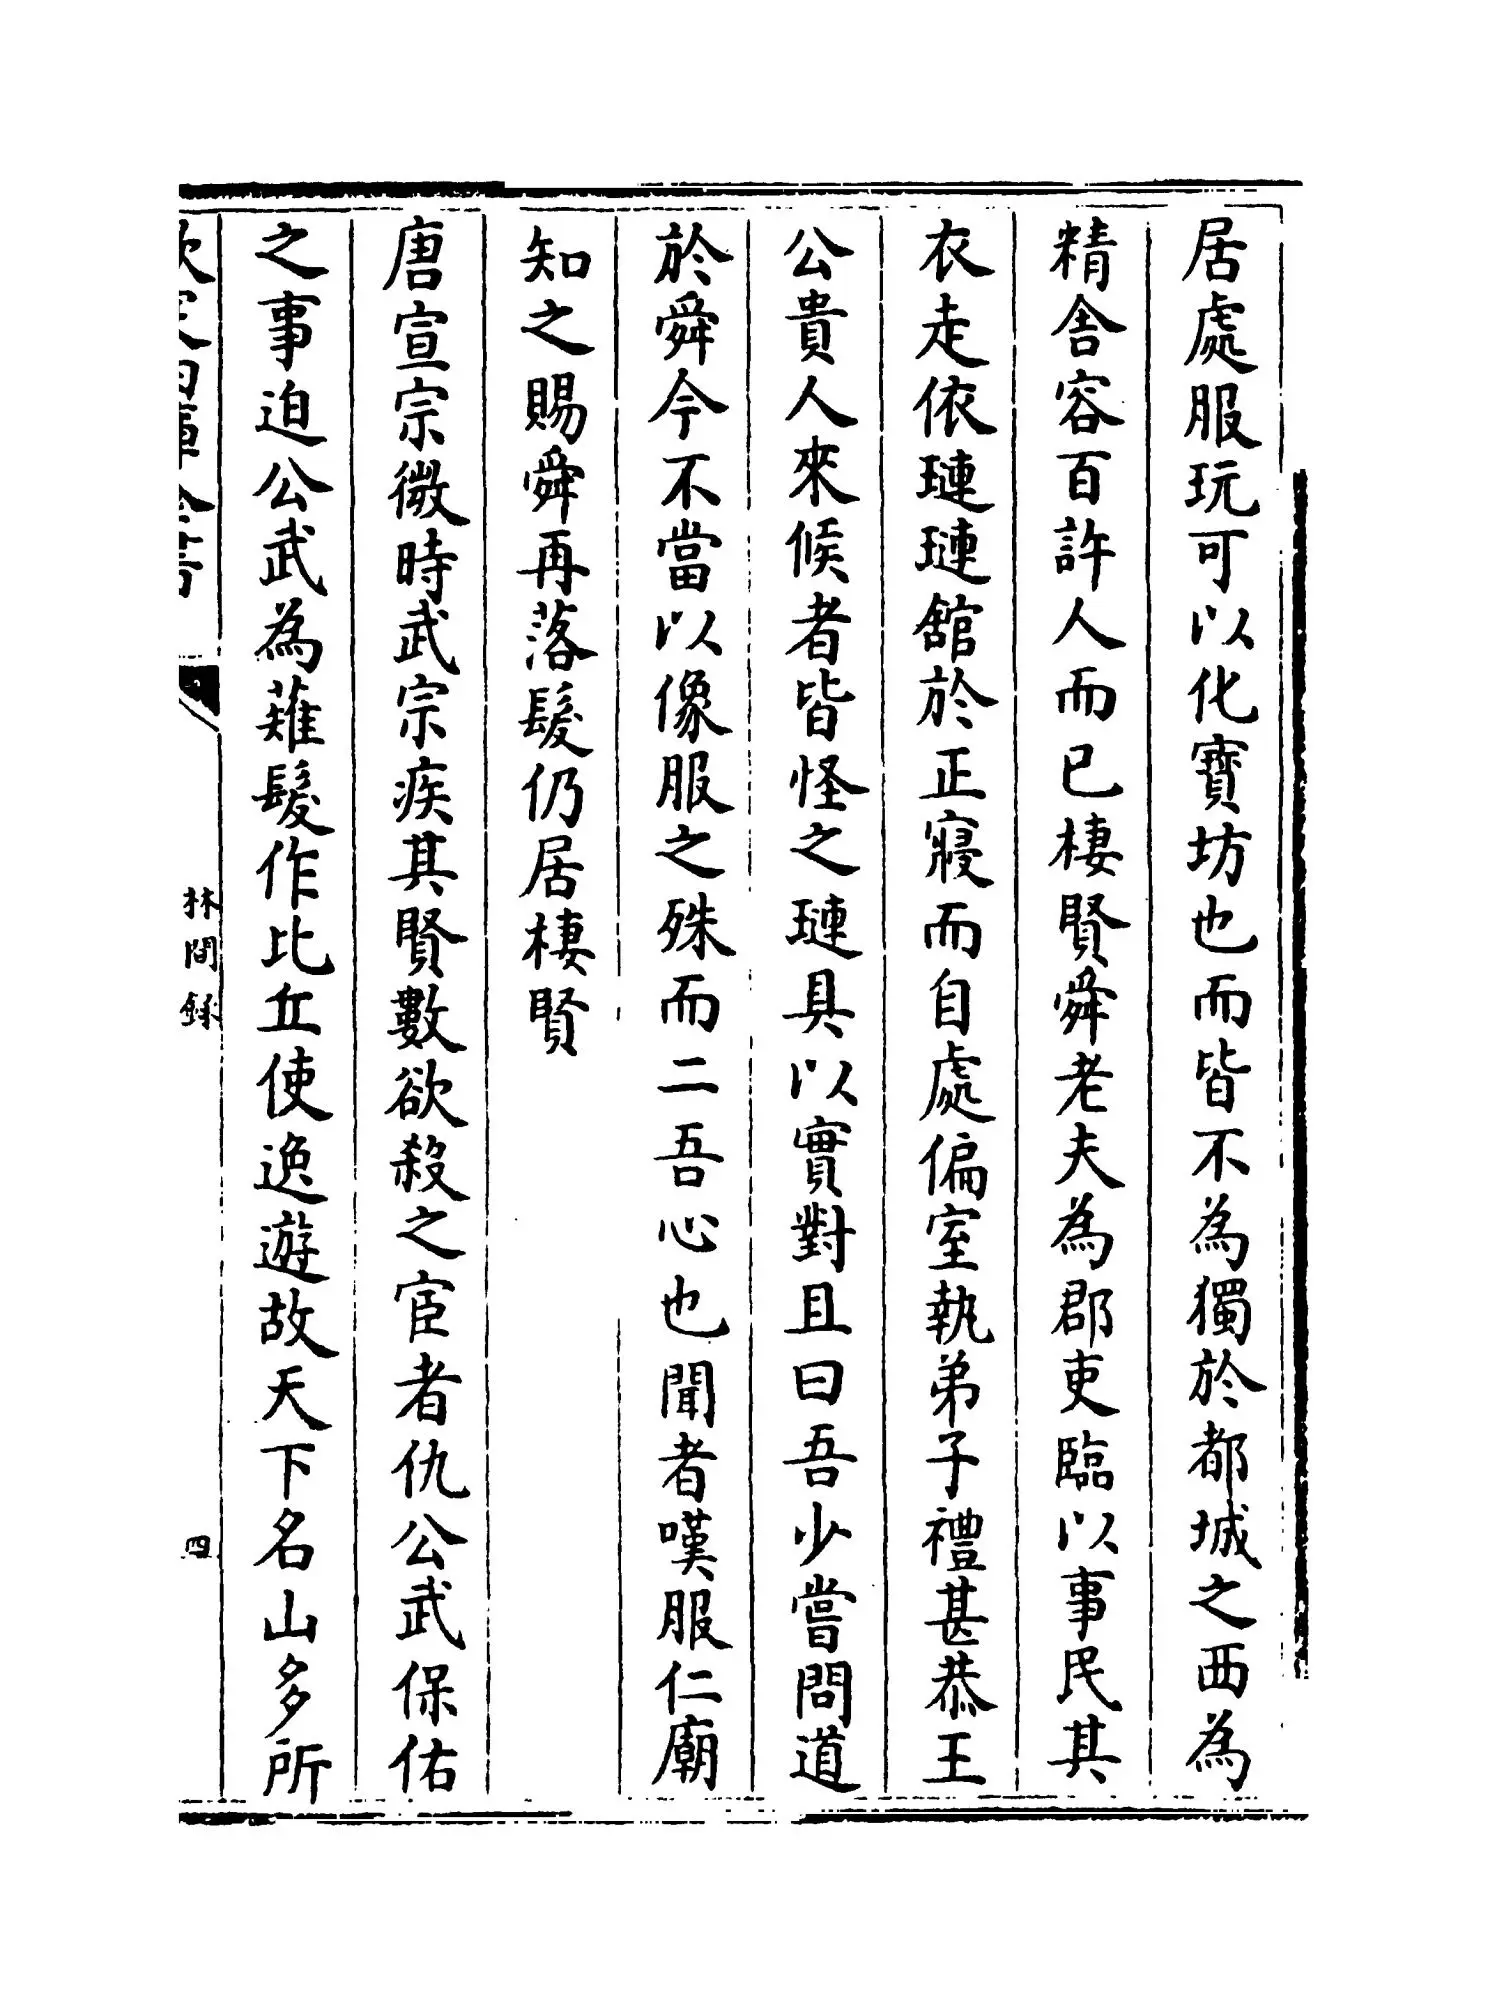 居處服玩可以化寶坊也而皆不為獨於都城之西為
精舍容百許人而已棲賢舜老夫為郡吏臨以事民其
衣走依璉璉舘於正寢而自處偏室執弟子禮甚恭王
公貴人來候者皆怪之璉具以實對且曰吾少嘗問道
於舜今不當以像服之殊而二吾心也聞者嘆服仁廟
知之賜舜再落髮仍居棲賢
唐宣宗微時武宗疾其賢數欲殺之宦者仇公武保佑
之事迫公武為薙髮作比丘使逸遊故天下名山多所
欽定四庫全書
林間録
四